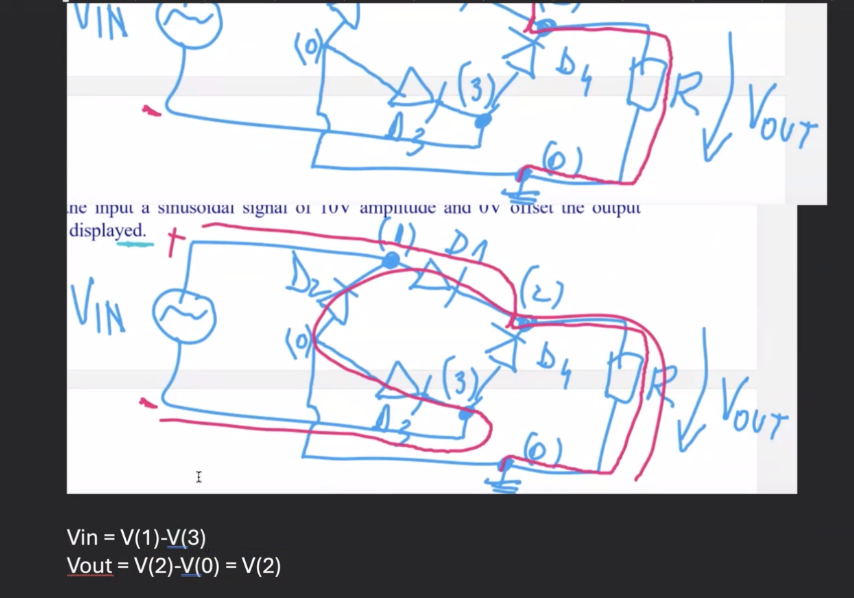 VIN
(0)
D4
(3)
R
VOUT
D3
(0)
he input a sinusoidal signal of 10V amplitude and 0V offset the output
displayed.
+
(1)
D1
D2
(2)
VIN
(0)
(3)
D4
R
VOUT
D3
(0)
Vin = V(1)-V(3)
Vout = V(2)-V(0) = V(2)